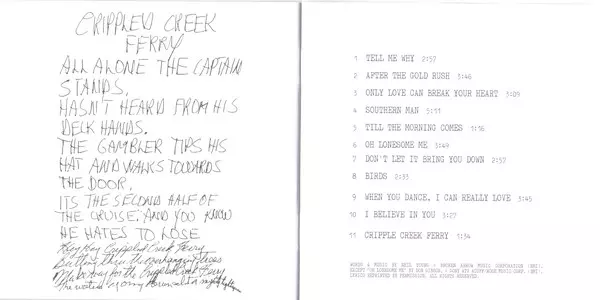 CRIPPLED CREEK
FERRY
ALL ALONE THE CAPTAIN
STANDS,
HASN'T HEARD FROM HIS
DECK HANDS.
THE GAMBLER TIPS HIS
HAT AND WALKS TOWARDS
THE DOOR,
ITS THE SECOND HALF OF
THE CRUISE, AND YOU KNOW
HE HATES TO LOSE
Hey Hey Crippled Creek Ferry
thru the overhanging trees
Make way for the Crippled Creek Ferry
The water
1 TELL ME WHY 2:57
2 AFTER THE GOLD RUSH 3:46
3 ONLY LOVE CAN BREAK YOUR HEART 3:09
4 SOUTHERN MAN 5:31
5 TILL THE MORNING COMES 1:16
6 OH LONESOME ME 3:49
7 DON'T LET IT BRING YOU DOWN 2:57
8 BIRDS 2:33
9 WHEN YOU DANCE, I CAN REALLY LOVE 3:45
10 I BELIEVE IN YOU 3:27
11 CRIPPLE CREEK FERRY 1:34
WORDS & MUSIC BY NEIL YOUNG - BROKEN ARROW MUSIC CORPORATION (BMI).
EXCEPT "OH LONESOME ME" BY DON GIBSON, SONY ATV ACUFF-ROSE MUSIC CORP. (BMI).
LYRICS REPRINTED BY PERMISSION. ALL RIGHTS RESERVED.